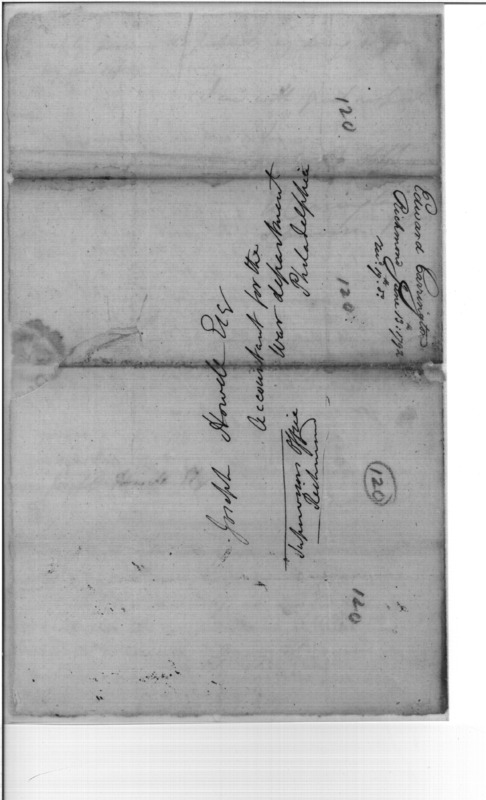 Joseph Howell Esq
Accountant for the
War department
Philadelphia
Supervisors Office
Richmond
Edward Carrington
Richmond June 13th 1792
120
120
120
120